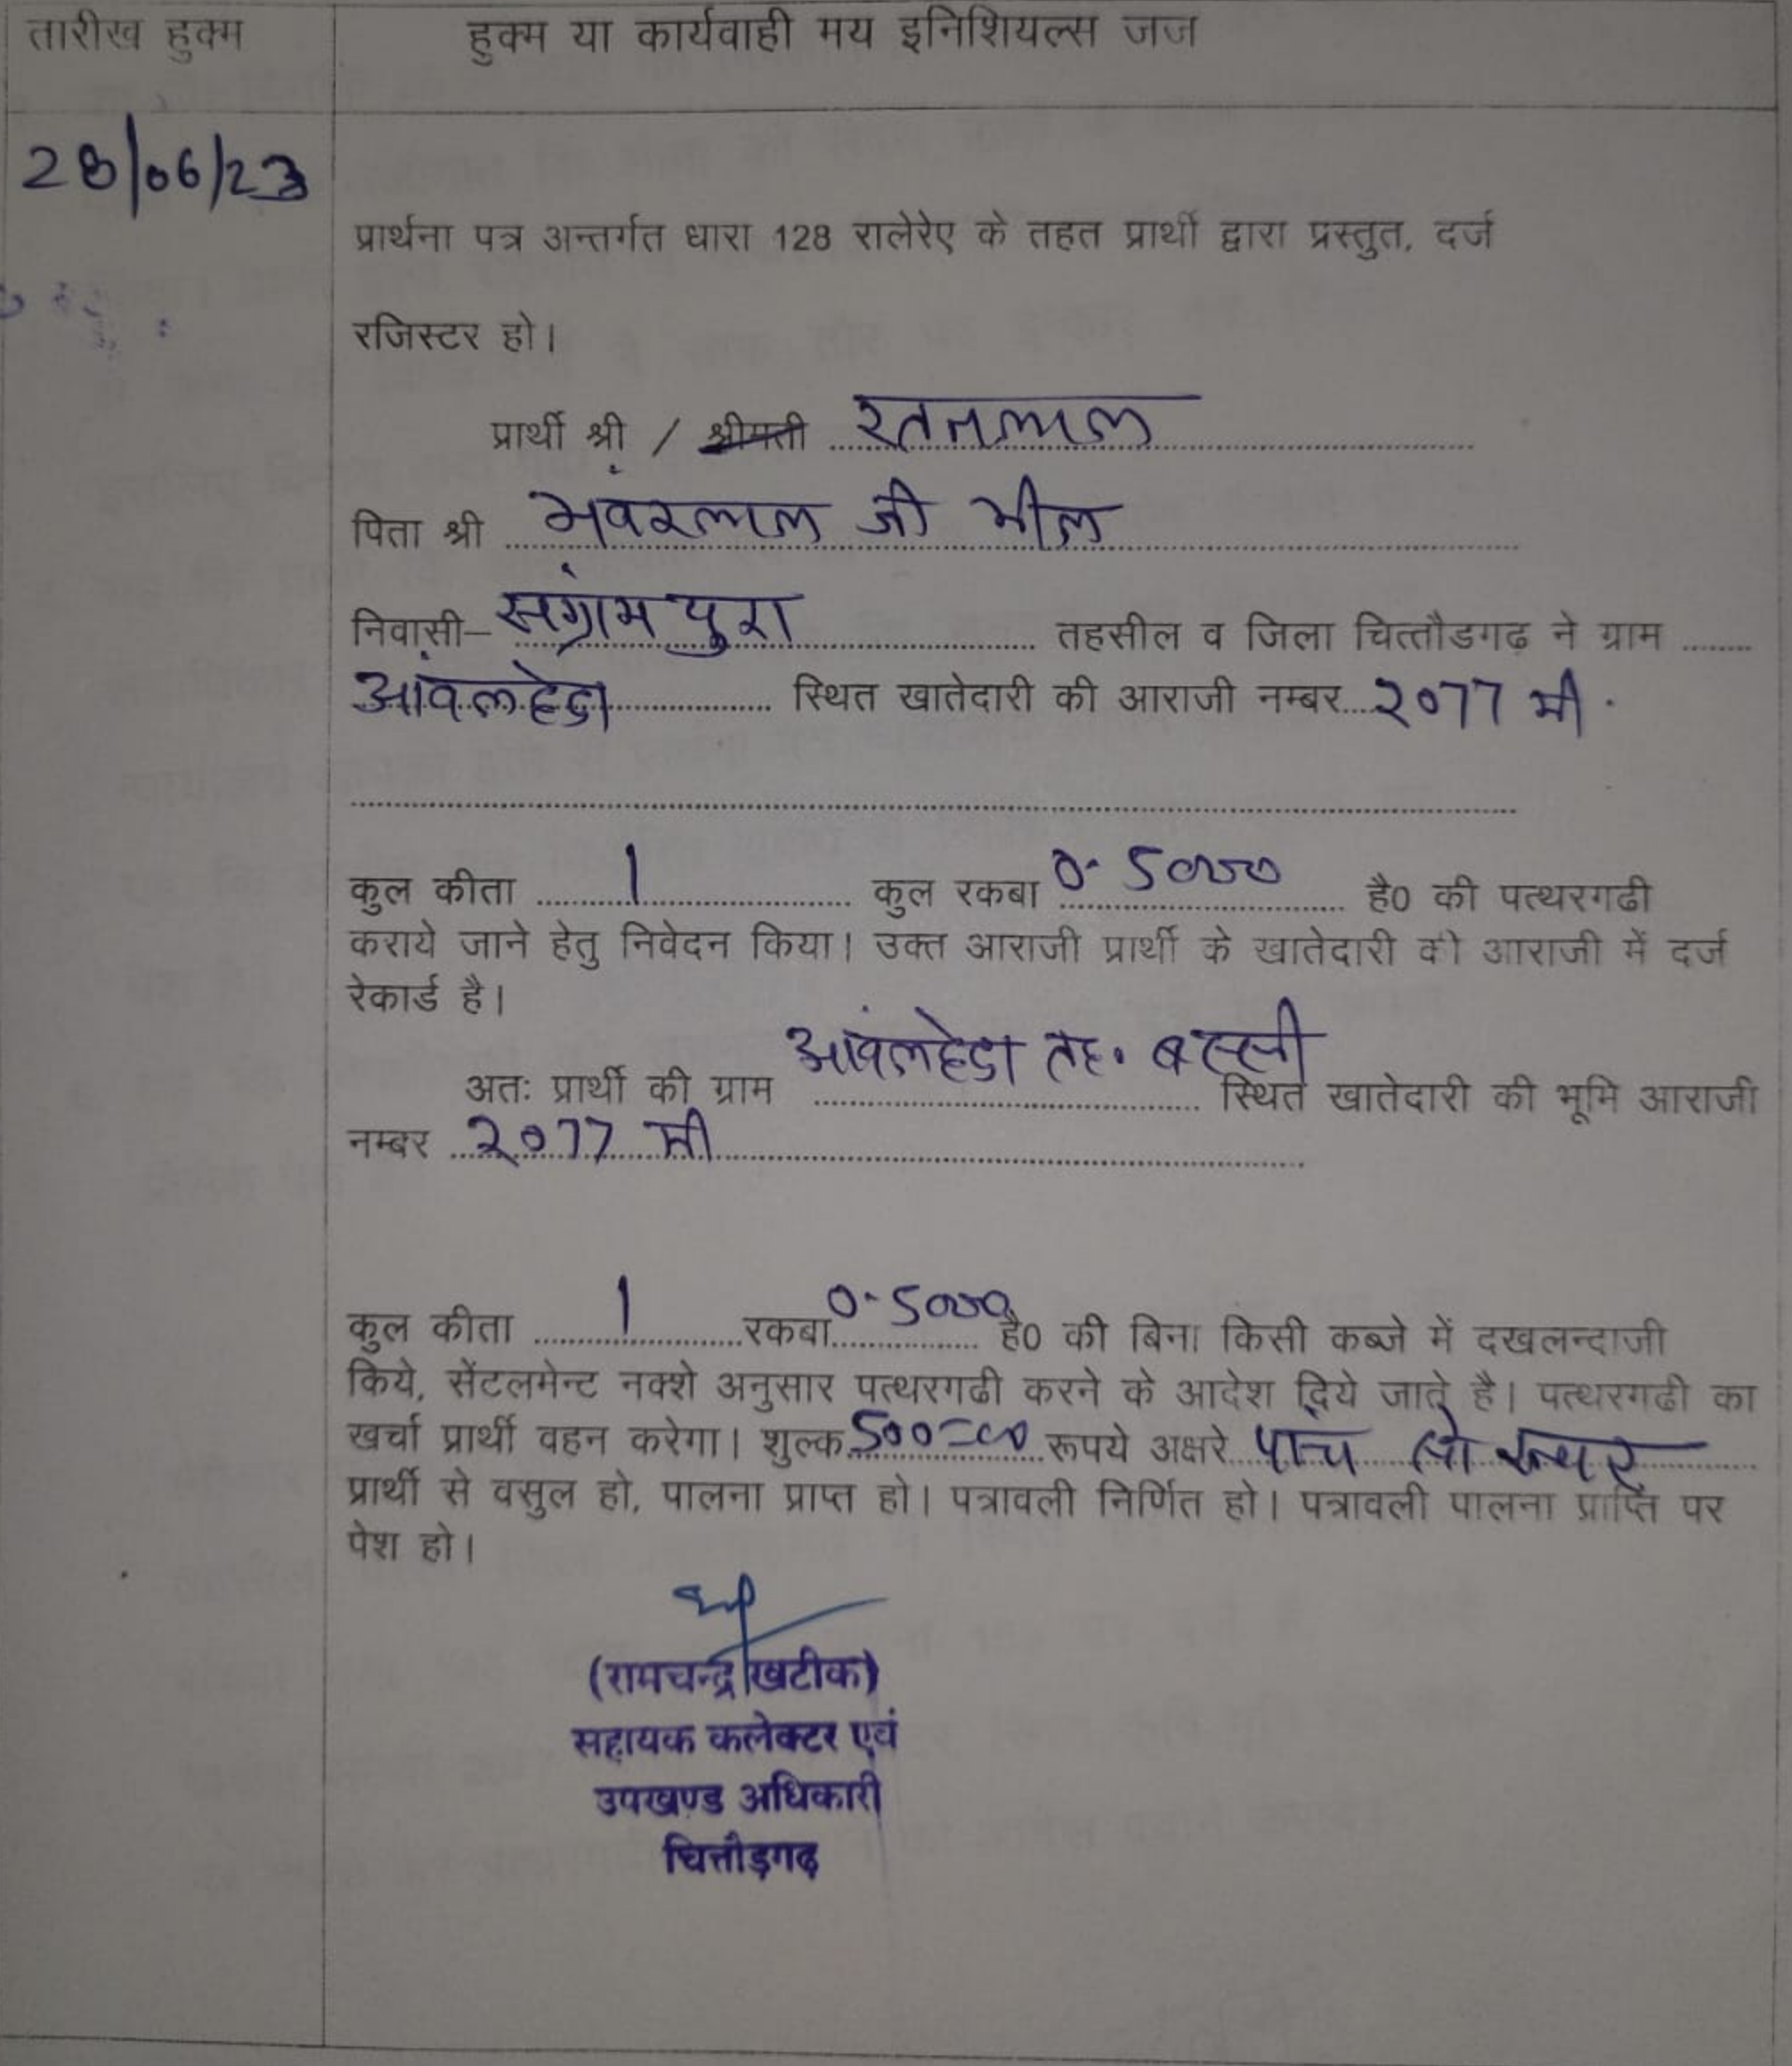 तारीख हुक्म
हुक्म या कार्यवाही मय इनिशियल्स जज
28/06/23
प्रार्थना पत्र अन्तर्गत धारा 128 रालेरेए के तहत प्रार्थी द्वारा प्रस्तुत, दर्ज
रजिस्टर हो।
प्रार्थी श्री / श्रीमती रतनलाल
पिता श्री भंवरलाल जी भील
निवासी- संग्रामपुरा तहसील व जिला चित्तौडगढ़ ने ग्राम ........
आंवलहेडा स्थित खातेदारी की आराजी नम्बर...२०77 मी.
कुल कीता 1 कुल रकबा 0-5000 है0 की पत्थरगढी
कराये जाने हेतु निवेदन किया। उक्त आराजी प्रार्थी के खातेदारी की आराजी में दर्ज
रेकार्ड है।
अतः प्रार्थी की ग्राम आंवलहेडा तह. बस्सी स्थित खातेदारी की भूमि आराजी
नम्बर २०77 मी
कुल कीता 1 रकबा 0-5000 है0 की बिना किसी कब्जे में दखलन्दाजी
किये, सेंटलमेन्ट नक्शे अनुसार पत्थरगढी करने के आदेश दिये जाते है। पत्थरगढी का
खर्चा प्रार्थी वहन करेगा। शुल्क 500=00 रूपये अक्षरे पांच सो रूपए
प्रार्थी से वसुल हो, पालना प्राप्त हो। पत्रावली निर्णित हो। पत्रावली पालना प्राप्ति पर
पेश हो।
(रामचन्द्र खटीक)
सहायक कलेक्टर एवं
उपखण्ड अधिकारी
चित्तौड़गढ़